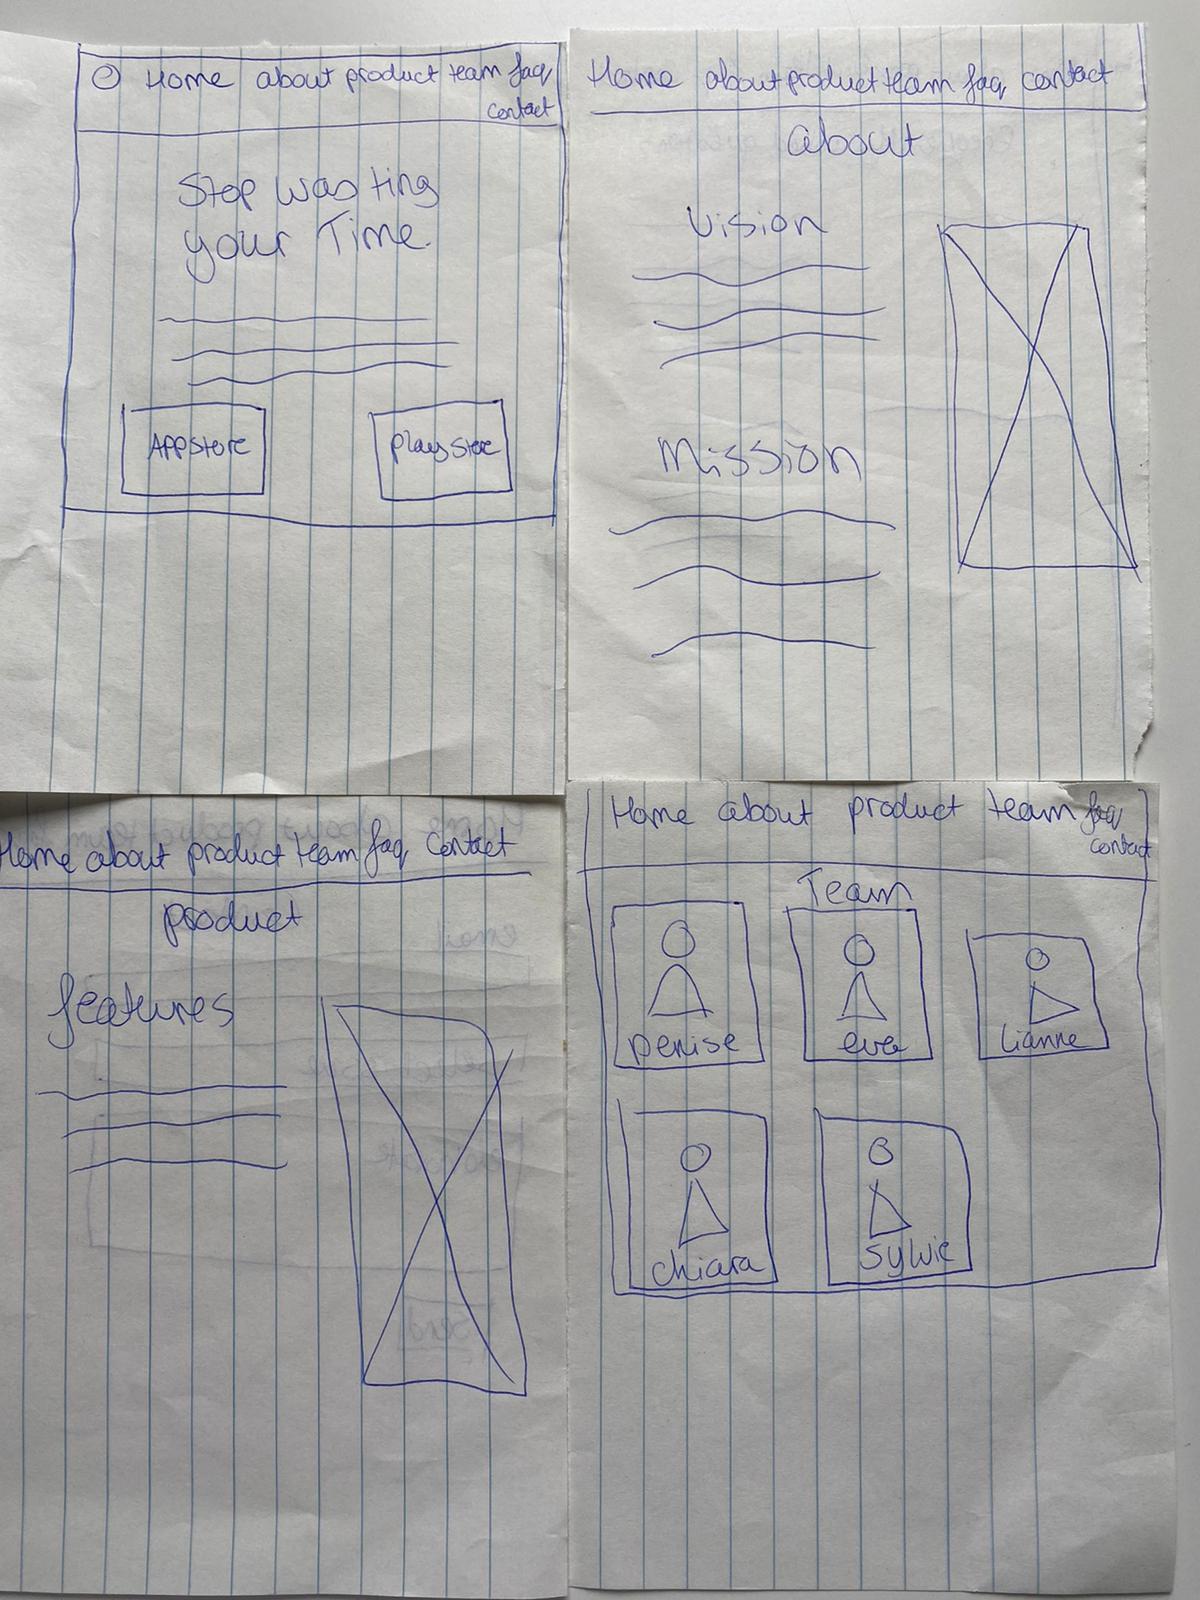 Home about product team faq
contact
Stop wasting
your Time.
APPstore
playstore
Home about product team faq contact
about
Vision
Mission
Home about product team faq contact
product
features
Home about product team faq
contact
Team
Denise
eva
Lianne
chiara
Sylvie
email
Send